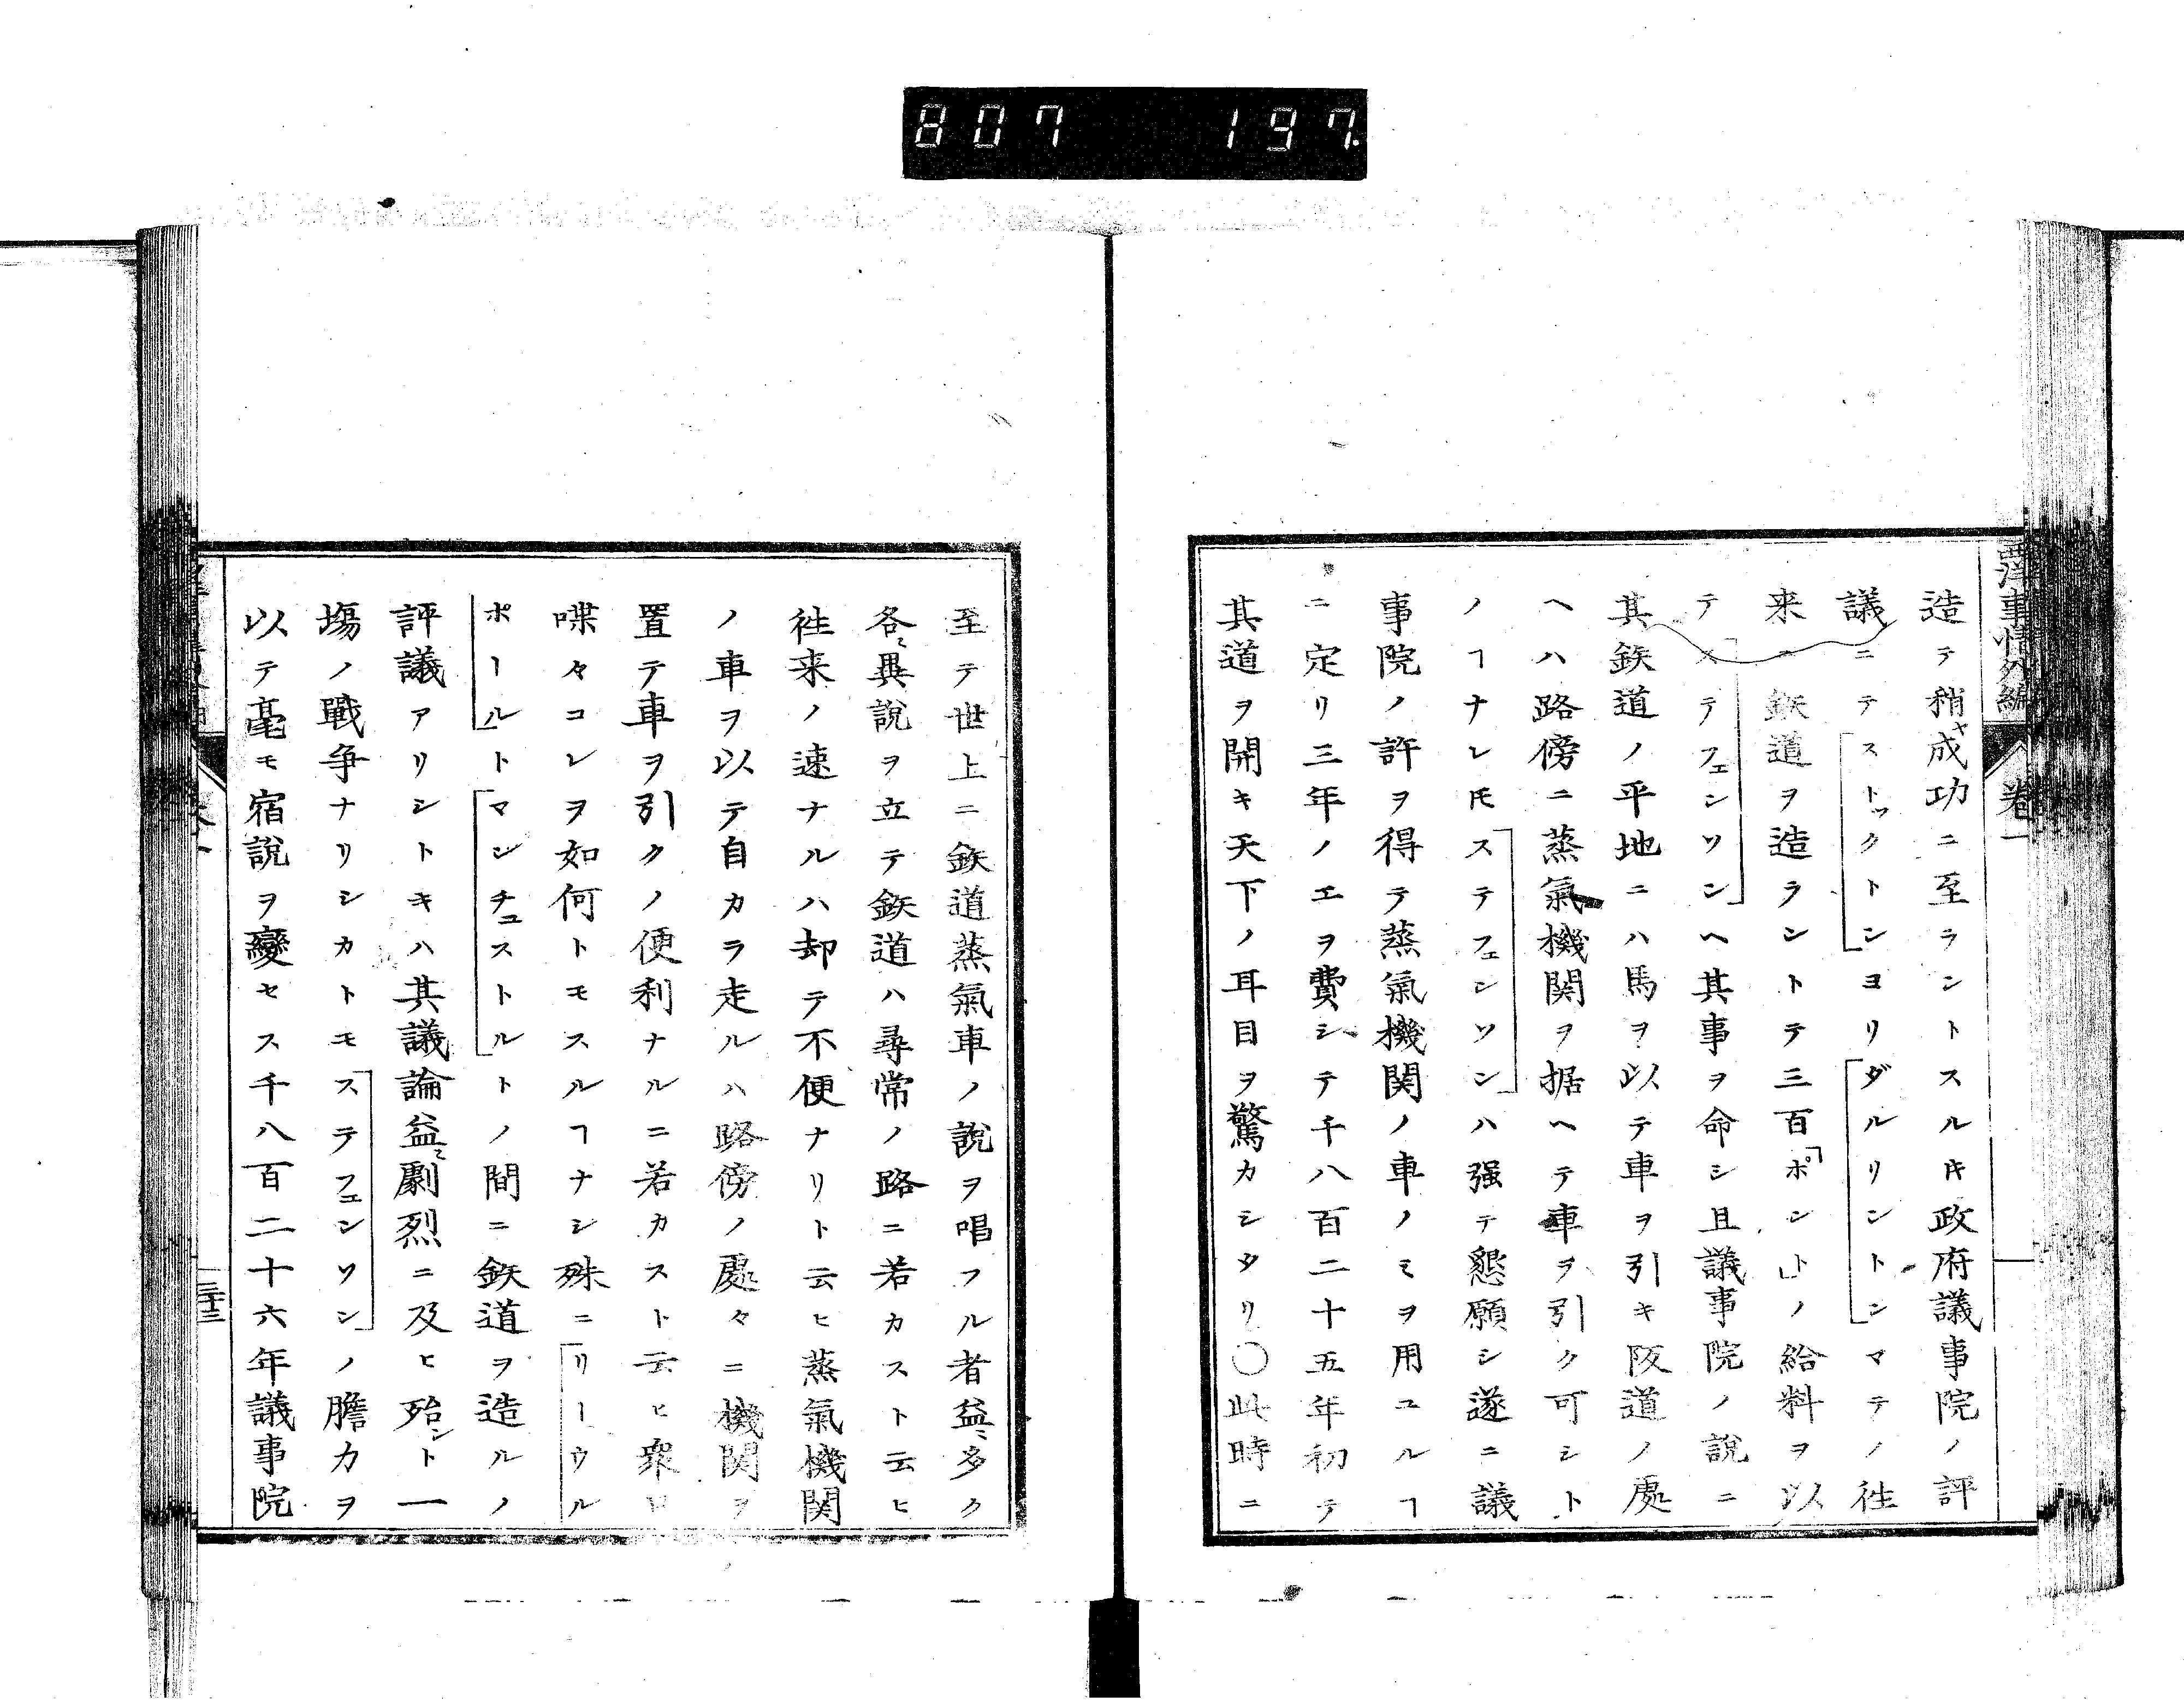 807 197.
西洋事情外編 卷一
造テ稍ヤ成功ニ至ラントスル𪜈政府議事院ノ評
議ニテ「ストックトン」ヨリ「ダルリントン」マテノ徃
来ニ鉄道ヲ造ラントテ三百「ポント」ノ給料ヲ以
テ「ステフェンソン」ヘ其事ヲ命シ且議事院ノ説ニ
其鉄道ノ平地ニハ馬ヲ以テ車ヲ引キ阪道ノ處
ヘハ路傍ニ蒸氣機関ヲ据ヘテ車ヲ引ク可シト
ノヿナレ𪜈「ステフェンソン」ハ强テ懇願シ遂ニ議
事院ノ許ヲ得テ蒸氣機関ノ車ノミヲ用ユルヿ
ニ定リ三年ノ工ヲ費シテ千八百二十五年初テ
其道ヲ開キ天下ノ耳目ヲ驚カシタリ〇此時ニ
至テ世上ニ鉄道蒸氣車ノ説ヲ唱フル者益〻多ク
各〻異説ヲ立テ鉄道ハ尋常ノ路ニ若カスト云ヒ
徃来ノ速ナルハ却テ不便ナリト云ヒ蒸氣機関
ノ車ヲ以テ自カラ走ルハ路傍ノ處々ニ機関ヲ
置テ車ヲ引クノ便利ナルニ若カスト云ヒ衆口
喋々コレヲ如何トモスルヿナシ殊ニ「リーウル
ポール」ト「マンチェストル」トノ間ニ鉄道ヲ造ルノ
評議アリシトキハ其議論益〻劇烈ニ及ヒ殆ント一
塲ノ戰争ナリシカトモ「ステフェンソン」ノ膽力ヲ
以テ毫モ宿説ヲ變セス千八百二十六年議事院
三十三